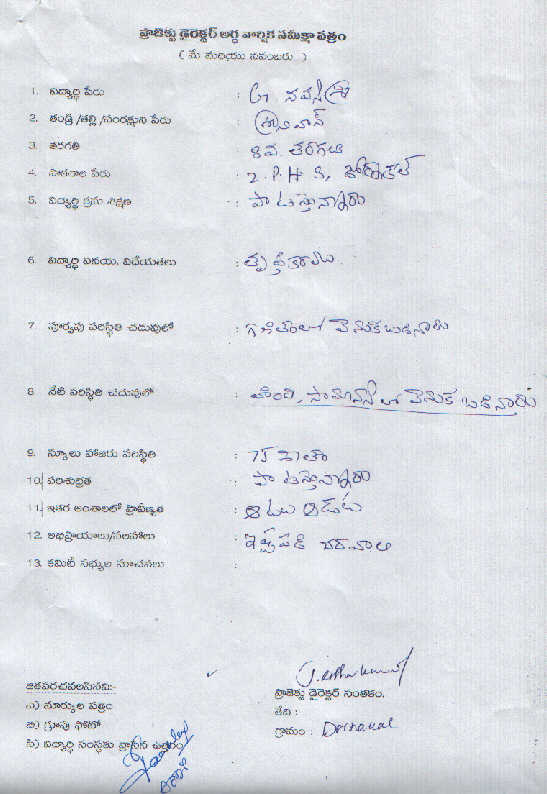 ప్రాజెక్టు డైరెక్టర్ అర్ధ వార్షిక సమీక్షా పత్రం
( మే మరియు నవంబరు )
1. విద్యార్థి పేరు : G. నవశ్రీ
2. తండ్రి /తల్లి /సంరక్షుని పేరు : శ్రీనివాస్
3. తరగతి : 8వ. తరగతి
4. పాఠశాల పేరు : Z. P. H. S, డోర్నకల్
5. విద్యార్థి క్రమ శిక్షణ : పాటిస్తున్నారు
6. విద్యార్థి వినయ, విధేయతలు : తృప్తికరము.
7. పూర్వపు పరిస్థితి చదువులో : గణితంలో వెనుకబడినారు
8. నేటి పరిస్థితి చదువులో : సైన్స్ లో వెనుక బడినారు
9. స్కూలు హాజరు పరిస్థితి : 75 శాతం
10. పరిశుభ్రత : పాటిస్తున్నారు
11. ఇతర అంశాలలో ప్రావీణ్యత :
12. అభిప్రాయాలు/సలహాలు : ఇష్టపడి చదవాలి
13. కమిటీ సభ్యుల సూచనలు :
జతపరచవలసినవి:-
ఎ) మార్కుల పత్రం
బి) గ్రూపు ఫోటో
సి) విద్యార్థి సంస్థకు వ్రాసిన ఉత్తరం
ప్రాజెక్టు డైరెక్టర్ సంతకం.
తేది :
గ్రామం : Dornakal